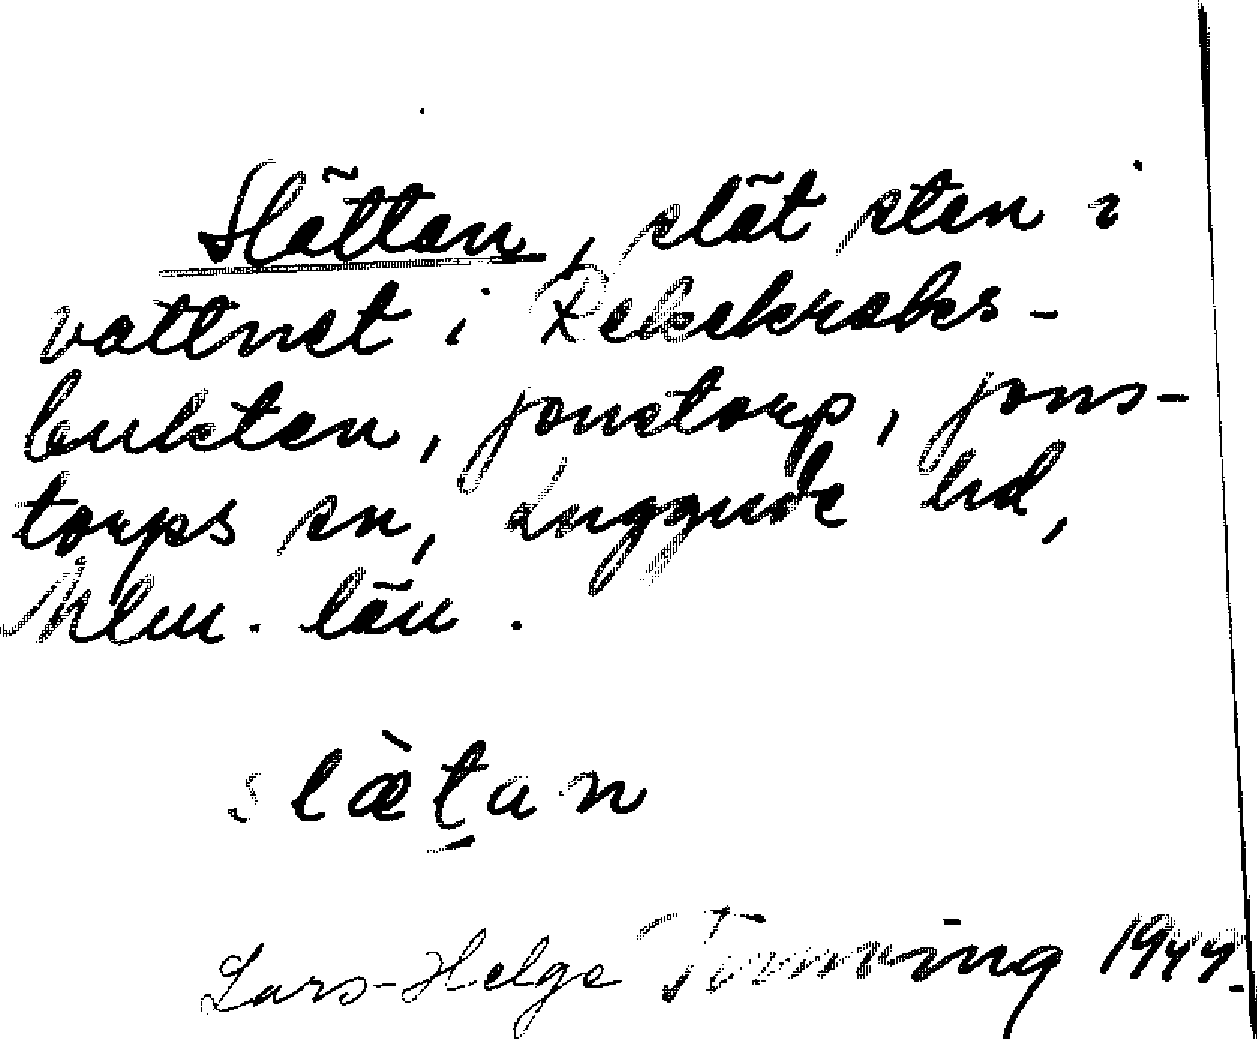 Slättan, slät sten i
vattnet i Rekekroks-
bukten, Jonstorp, Jons-
torps sn, Luggude hd,
Mlm. län.
slæ̀t̠an
Lars-Helge 1944.